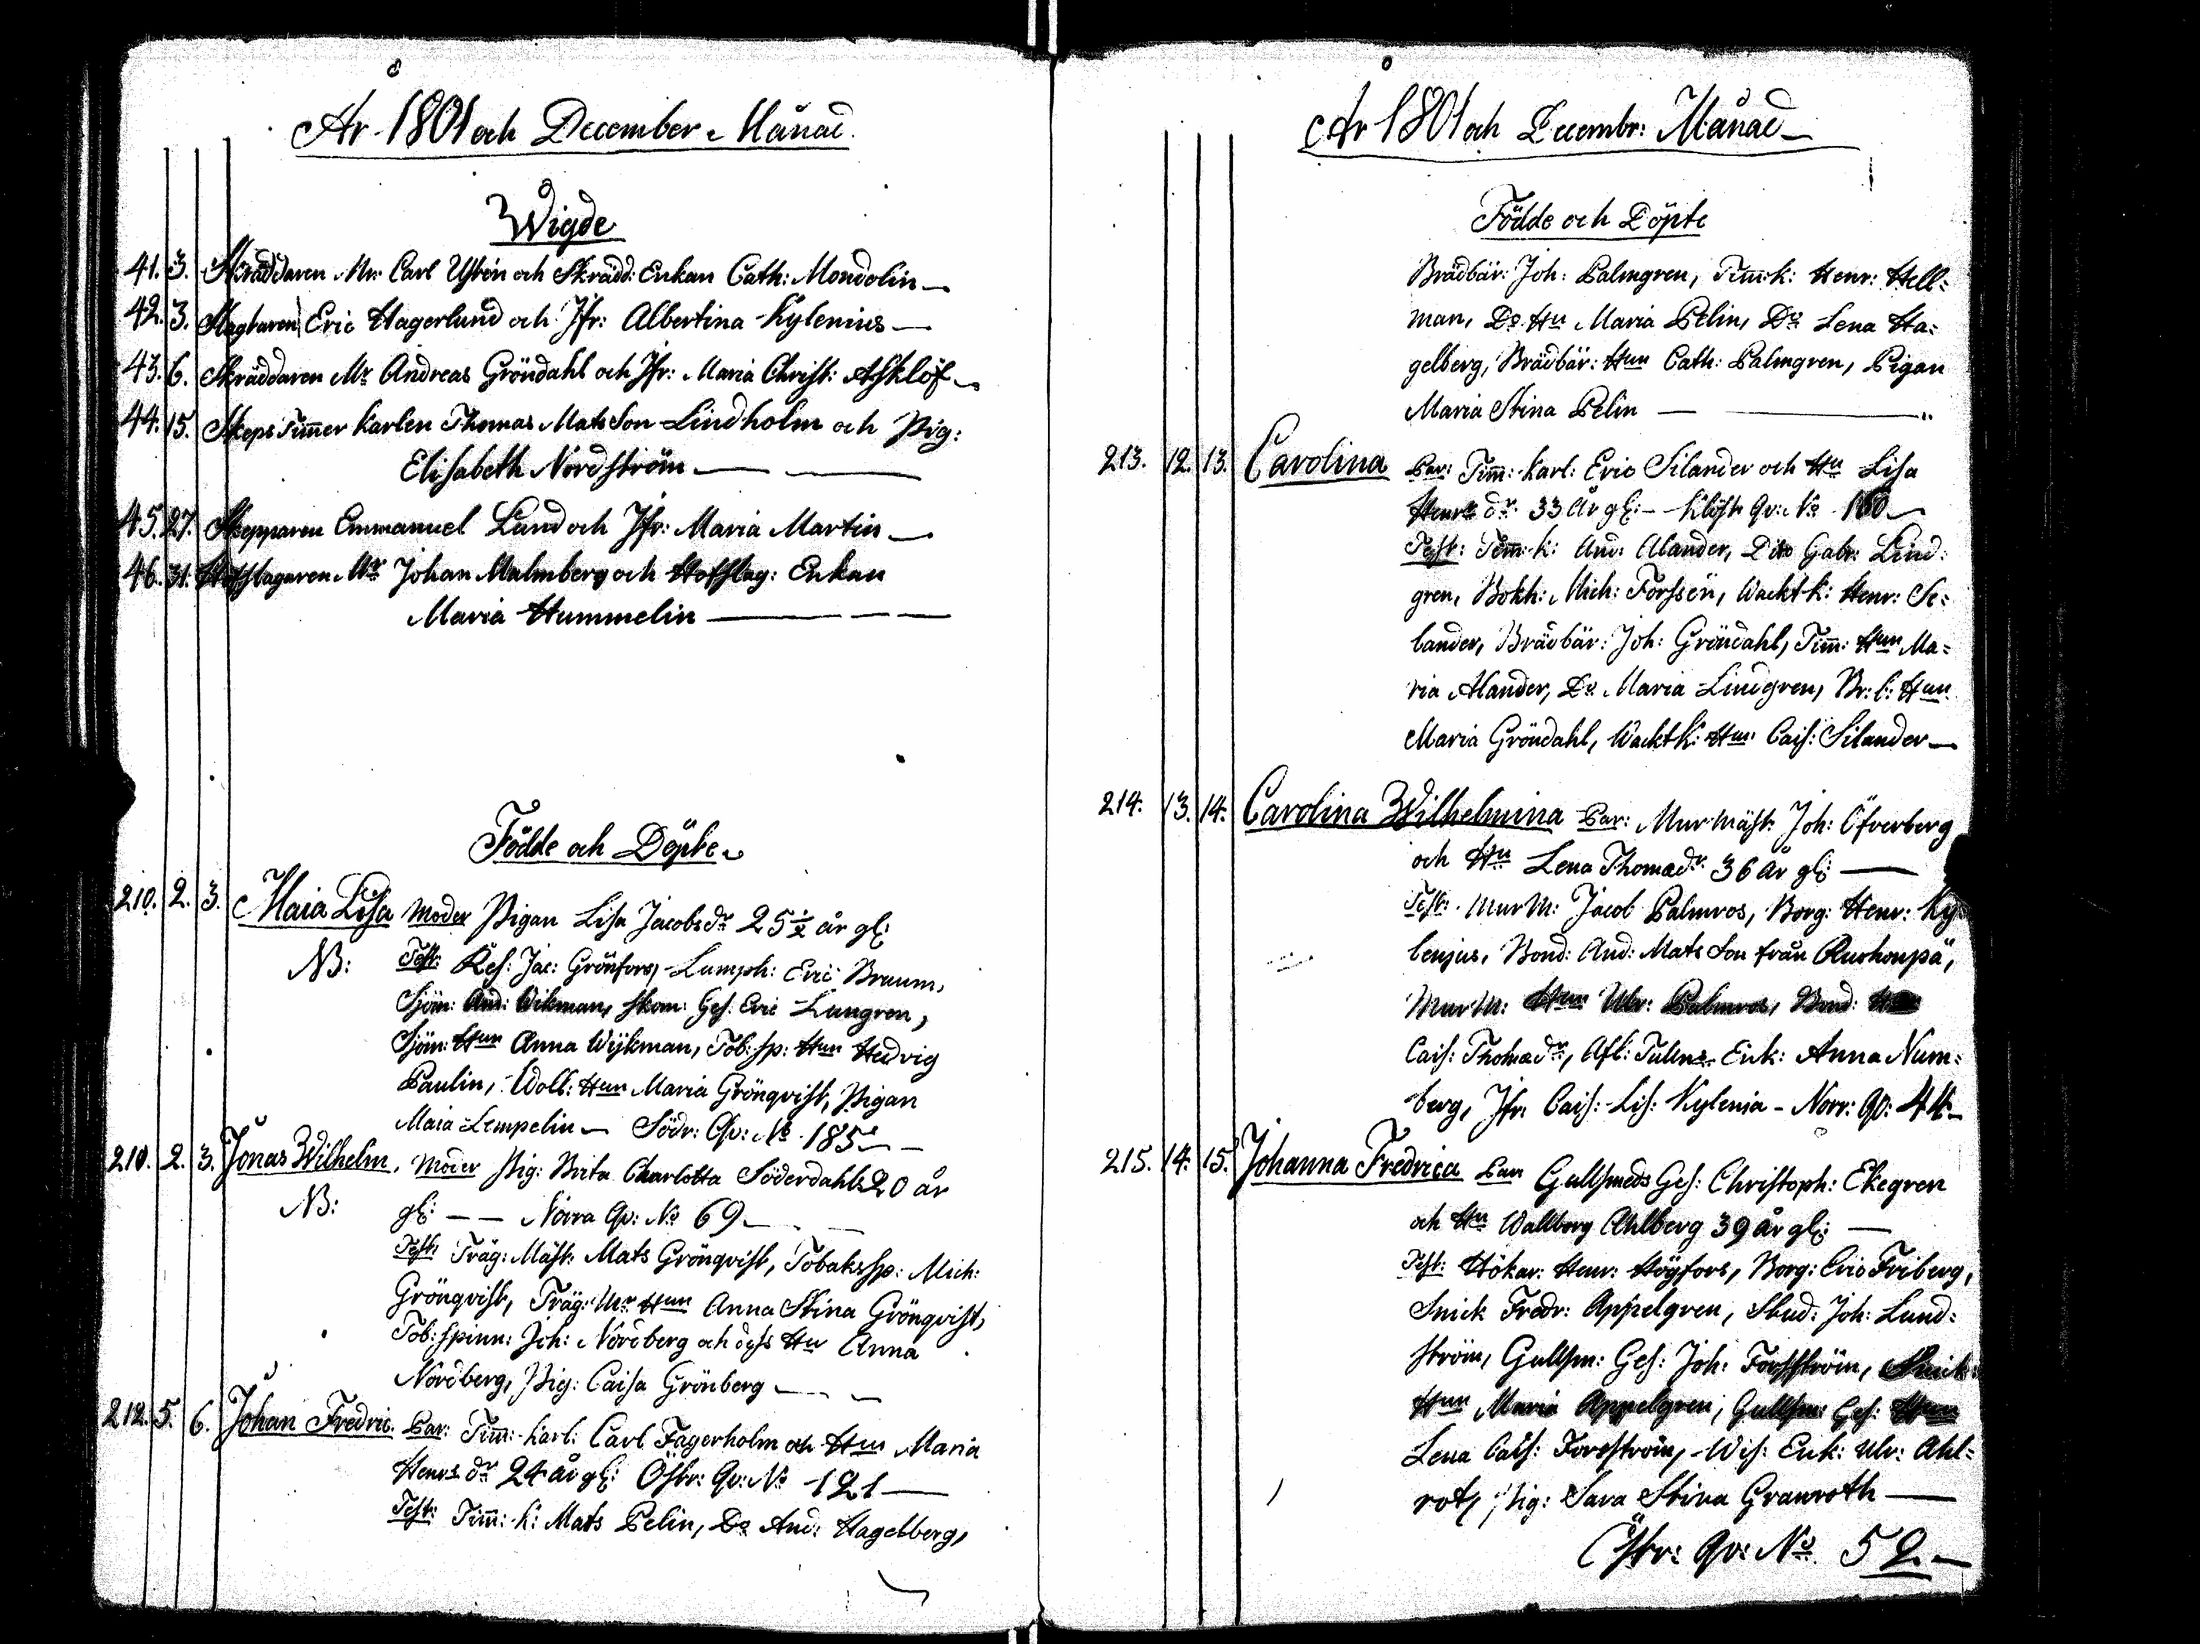 År 1801 och December Månad.
Wigde
41. 3. Skräddaren Mr: Carl Ustén och Skrädd: Enkan Cath: Mondolin
42. 3. Eric Hagerlund och Jfr: Albertina Kylenius
43. 6. Skräddaren Mr Andreas Gröndahl och Jfr: Maria Christ: Asklöf
44. 15. Skeps Timmer Karlen Thomas Mats Son Lindholm och Pig:
Elisabeth Nordström
45. 27. Skepparen Emmanuel Lund och Jfr: Maria Martin
46. 31. Hofslagaren Mr Johan Malmberg och Hofslag: Enkan
Maria Hummelin
Födde och Döpte
210. 2. 3. Maia Lisa Moder Pigan Lisa Jacobsdr 25 1/2 år gl:
NB: Test: Ref: Jac: Grönfors, Lumph: Eric Braum,
Sjöm: And: Wikman, Skom: Ges: Eric Lungren,
Sjöm: Hun Anna Wijkman, Tob: sp: Hun Hedvig
Paulin, Woll: Hun Maria Grönqvist, Pigan
Maia Lempelin Södr: Qv: No 185
210. 2. 3. Jonas Wilhelm, Moder Pig: Brita Charlotta Söderdahl 20 år
NB: gl: Norra Qv: No 69
Test: Träg: Mäst: Mats Grönqvist, Tobaks sp: Mich:
Grönqvist, Träg: Mr Hun Anna Stina Grönqvist,
Tob: spinn: Joh: Nordberg och dess Hu Anna
Nordberg, Pig: Caisa Grönberg
212. 5. 6. Johan Fredric. Par: Timm: Karl: Carl Fagerholm och Hun Maria
Henrs dr 24 år gl: Östr: Qv: No 121
Test: Timm: k: Mats Pelin, Do And: Hagelberg,
År 1801 och Decembr: Månad
Födde och Döpte
Brädbär: Joh: Palmgren, Timk: Henr: Hell=
man, Do Hu Maria Pelin, Do Lena Ha=
gelberg, Brädbär: Hun Cath: Palmgren, Pigan
Maria Stina Pelin
213. 12. 13. Carolina Par: Timm: Karl: Eric Silander och Hu Lisa
Henrs dr 33 år gl: Klöst: Qv: No 160
Test: Timm: k: And: Alander, Dito Gabr: Lind=
gren, Bokh: Mich: Forssén, Wackt k: Henr: Se=
lander, Brädbär: Joh: Gröndahl, Timm: Hun Ma=
ria Alander, Do Maria Lindgren, Br: b: Hun
Maria Gröndahl, Wackt k: Hun Cais: Silander
214. 13. 14. Carolina Wilhelmina Par: Mur Mäst: Joh: Öfverberg
och Hu Lena Thomædr 36 år gl:
Test: Mur M: Jacob Palmros, Borg: Henr: Ky=
lenjus, Bond: And: Mats Son från
Mur M: Hun Ulr: Palmros, Bond: Hun
Cais: Thomædr, Afl: Enk: Anna Num=
berg, Jfr: Cais: Lis: Kylenia - Norr: Qv: 44
215. 14. 15. Johanna Fredrica Par: Gullsmeds Ges: Christoph: Ekegren
och Hu Wallborg Ahlberg 39 år gl:
Test: Hökar: Henr: Högfors, Borg: Eric Friberg,
Snick Fredr: Appelgren, Stud: Joh: Lund=
ström, Gullsm: Ges: Joh: Forsström, Snick:
Hun Maria Appelgren, Gullsm: Ges: Hun
Lena Cais: Forsström, Wis: Enk: Ulr: Ahl=
rot, Pig: Sara Stina Granroth
Östr: Qv: No 52